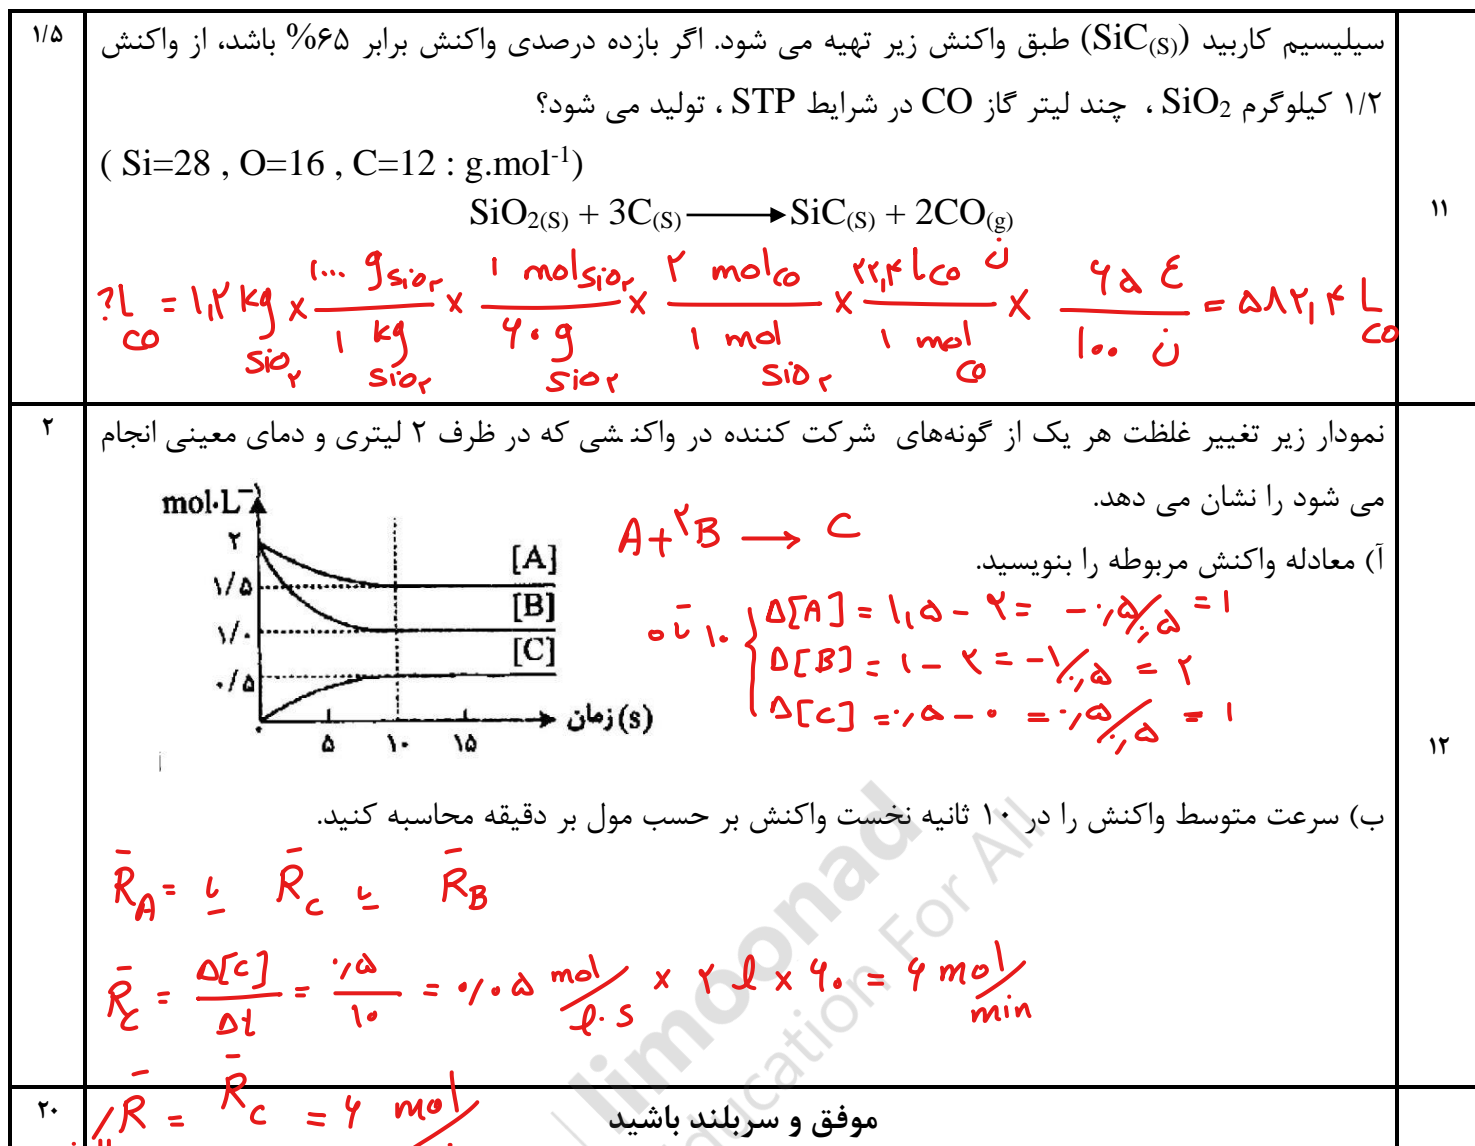 ۱/۵
سیلیسیم کاربید (SiC(S)) طبق واکنش زیر تهیه می شود. اگر بازده درصدی واکنش برابر ۶۵% باشد، از واکنش
۱/۲ کیلوگرم SiO2 ، چند لیتر گاز CO در شرایط STP ، تولید می شود؟
( Si=28 , O=16 , C=12 : g.mol-1)
SiO2(S) + 3C(S) ⟶ SiC(S) + 2CO(g)
۱۱
?L CO = ۱,۲ kg SiO۲ × ۱۰۰۰ g SiO۲ / ۱ kg SiO۲ × ۱ mol SiO۲ / ۶۰ g SiO۲ × ۲ mol CO / ۱ mol SiO۲ × ۲۲,۴ L CO ن / ۱ mol CO × ۶۵ ع / ۱۰۰ ن = ۵۸۲,۴ L CO
۲
نمودار زیر تغییر غلظت هر یک از گونه‌های شرکت کننده در واکنشی که در ظرف ۲ لیتری و دمای معینی انجام
می شود را نشان می دهد.
mol·L⁻
۲
۱/۵
۱/۰
۰/۵
[A]
[B]
[C]
۰ ۵ ۱۰ ۱۵
زمان (s)
A + ۲B ⟶ C
آ) معادله واکنش مربوطه را بنویسید.
۰ تا ۱۰
Δ[A] = ۱,۵ - ۲ = -۰,۵/۰,۵ = ۱
Δ[B] = ۱ - ۲ = -۱/۰,۵ = ۲
Δ[C] = ۰,۵ - ۰ = ۰,۵/۰,۵ = ۱
۱۲
ب) سرعت متوسط واکنش را در ۱۰ ثانیه نخست واکنش بر حسب مول بر دقیقه محاسبه کنید.
R̄A = یا R̄C یا R̄B
R̄C = Δ[C]/Δt = ۰,۵/۱۰ = ۰/۰۵ mol/l.s × ۲ l × ۶۰ = ۶ mol/min
R̄ = R̄C = ۶ mol/
۲۰
موفق و سربلند باشید
limoonad
Education For All